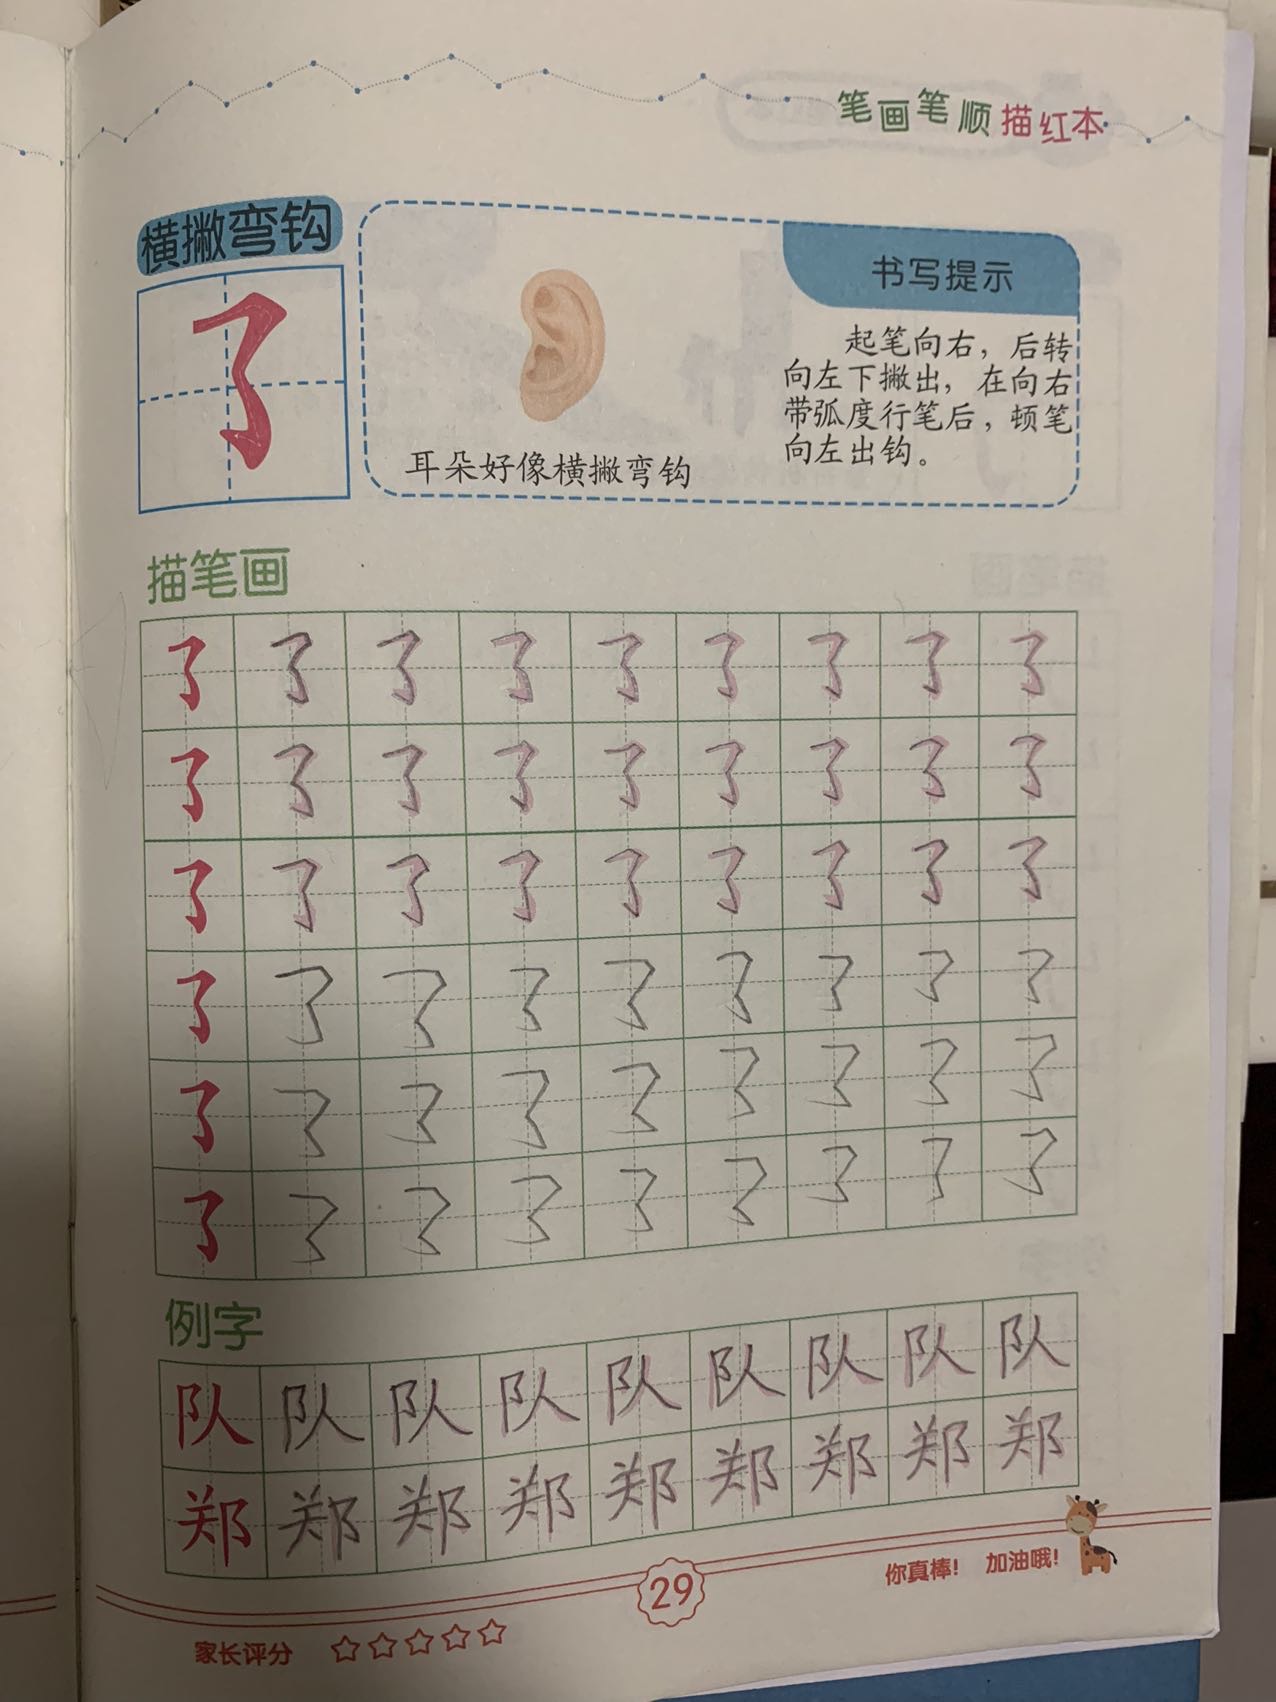 笔画笔顺描红本
横撇弯钩
书写提示
起笔向右，后转
向左下撇出，在向右
带弧度行笔后，顿笔
向左出钩。
耳朵好像横撇弯钩
描笔画
例字
队 队 队 队 队 队 队 队 队
郑 郑 郑 郑 郑 郑 郑 郑 郑
你真棒！ 加油哦！
29
家长评分